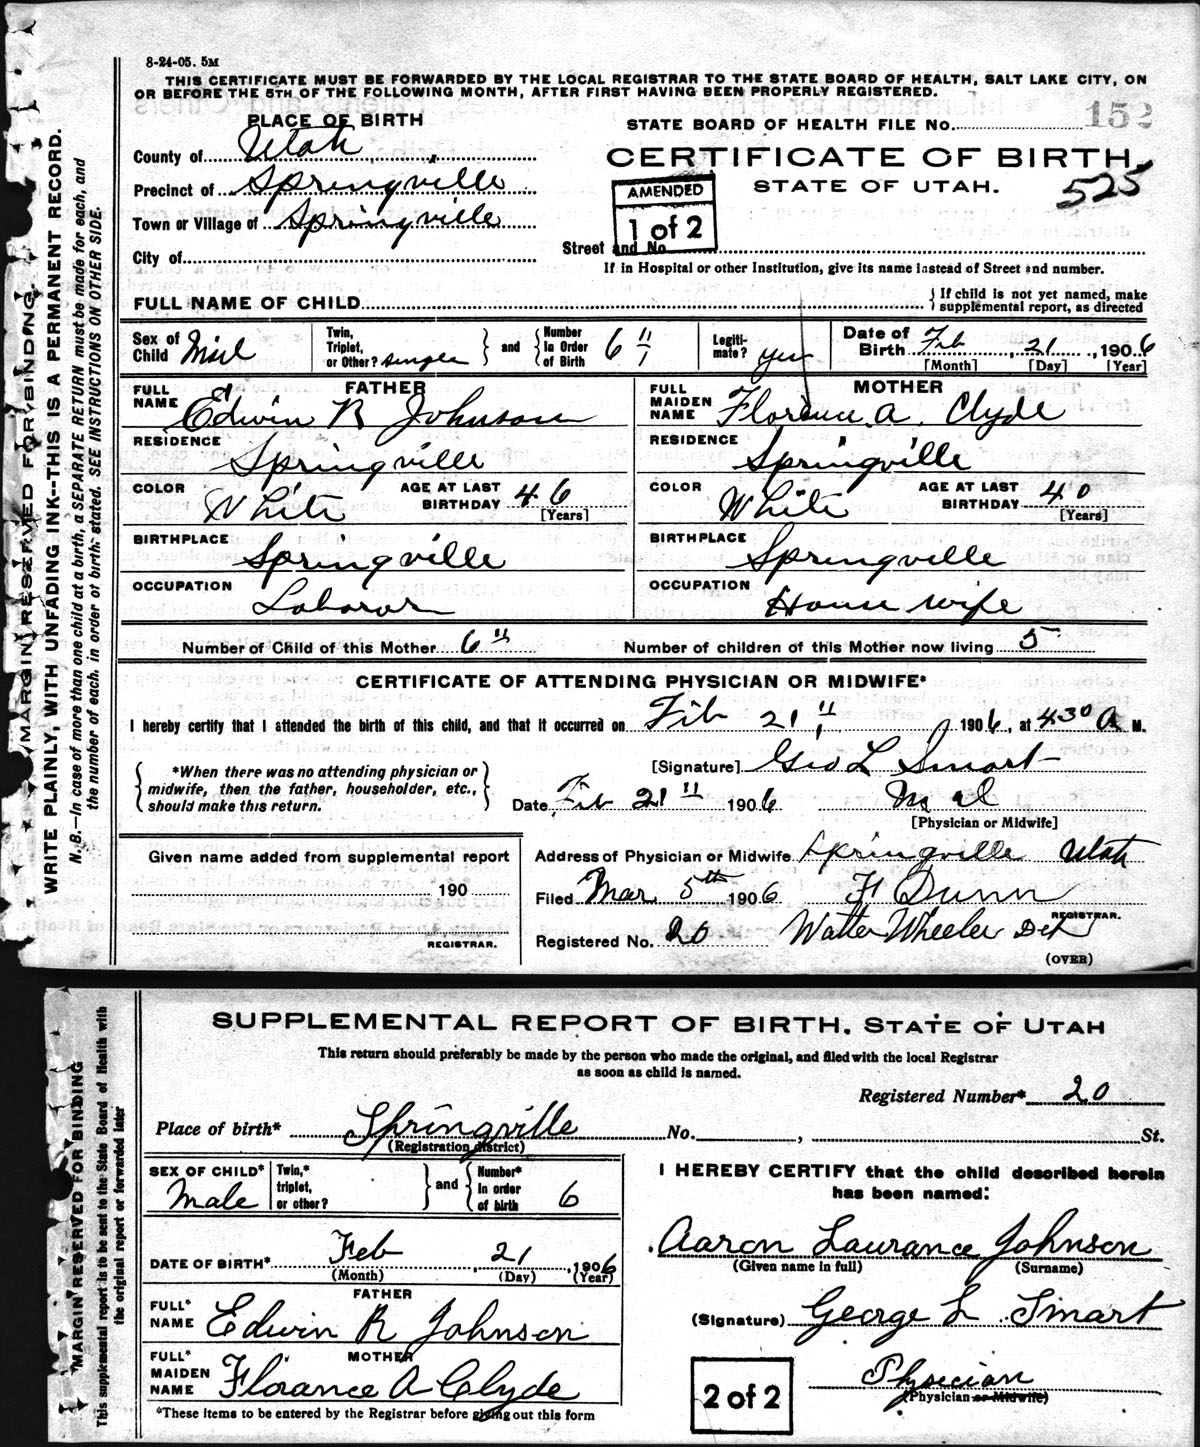 8-24-05. 5M
THIS CERTIFICATE MUST BE FORWARDED BY THE LOCAL REGISTRAR TO THE STATE BOARD OF HEALTH, SALT LAKE CITY, ON
OR BEFORE THE 5TH OF THE FOLLOWING MONTH, AFTER FIRST HAVING BEEN PROPERLY REGISTERED.
PLACE OF BIRTH
County of Utah
Precinct of Springville
Town or Village of Springville
City of
STATE BOARD OF HEALTH FILE No. 152
CERTIFICATE OF BIRTH
525
STATE OF UTAH.
AMENDED
1 of 2
Street and No.
If in Hospital or other Institution, give its name instead of Street and number.
FULL NAME OF CHILD
If child is not yet named, make
supplemental report, as directed
Sex of Child
Twin, Triplet, or Other? single and Number In Order of Birth 6"
Legitimate? yes
Date of Birth Feb 21, 1906
[Month] [Day] [Year]
FATHER
FULL NAME Edwin R Johnson
RESIDENCE Springville
COLOR White AGE AT LAST BIRTHDAY 46
[Years]
BIRTHPLACE Springville
OCCUPATION Laborer
MOTHER
FULL MAIDEN NAME Florence A. Clyde
RESIDENCE Springville
COLOR White AGE AT LAST BIRTHDAY 40
[Years]
BIRTHPLACE Springville
OCCUPATION House wife
Number of Child of this Mother 6" Number of children of this Mother now living 5
CERTIFICATE OF ATTENDING PHYSICIAN OR MIDWIFE*
I hereby certify that I attended the birth of this child, and that it occurred on Feb 21" 1906, at 430 A M.
*When there was no attending physician or
midwife, then the father, householder, etc.,
should make this return.
[Signature] Geo L Smart
Date Feb 21" 1906 M d
[Physician or Midwife]
Given name added from supplemental report
190
REGISTRAR.
Address of Physician or Midwife Springville Utah
Filed Mar. 5th 1906 F Dunn
REGISTRAR.
Registered No. 20 Walter Wheeler Dep
(OVER)
MARGIN RESERVED FOR BINDING.
WRITE PLAINLY, WITH UNFADING INK--THIS IS A PERMANENT RECORD.
N. B.—In case of more than one child at a birth, a SEPARATE RETURN must be made for each, and
the number of each, in order of birth, stated. SEE INSTRUCTIONS ON OTHER SIDE.
SUPPLEMENTAL REPORT OF BIRTH, STATE OF UTAH
This return should preferably be made by the person who made the original, and filed with the local Registrar
as soon as child is named.
Registered Number* 20
Place of birth* Springville No. , St.
(Registration district)
SEX OF CHILD* Male
Twin,* triplet, or other? and Number* in order of birth 6
DATE OF BIRTH* Feb, 21, 1906
(Month) (Day) (Year)
FATHER
FULL* NAME Edwin R Johnson
MOTHER
FULL* MAIDEN NAME Florance A Clyde
*These items to be entered by the Registrar before giving out this form
I HEREBY CERTIFY that the child described herein
has been named:
Aaron Laurance Johnson
(Given name in full) (Surname)
(Signature) George L. Smart
Physician
(Physician or Midwife)
2 of 2
MARGIN RESERVED FOR BINDING
This supplemental report is to be sent to the State Board of Health with
the original report or forwarded later